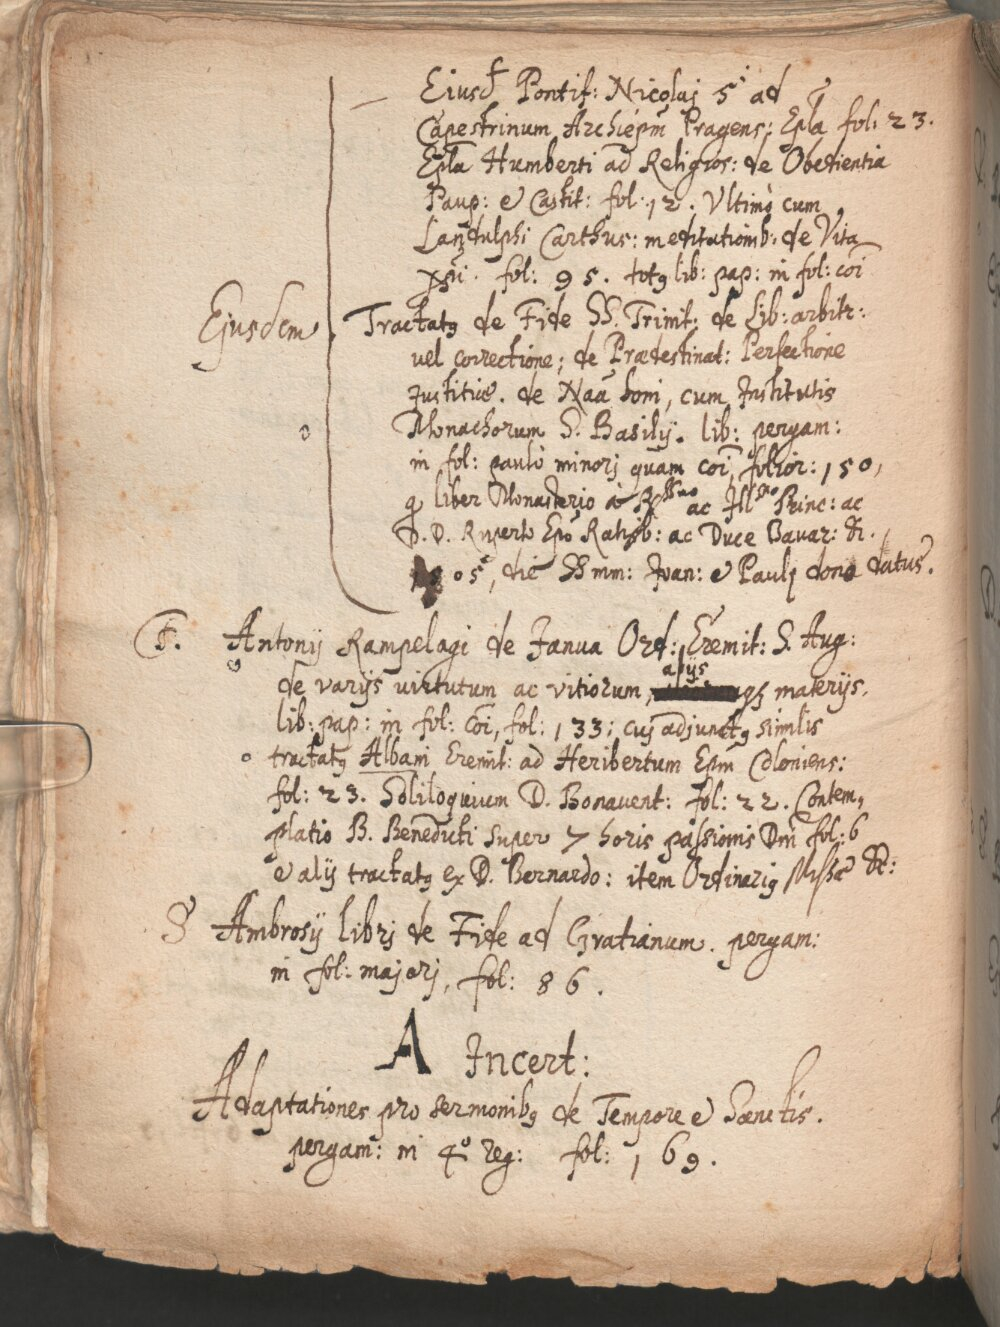 Eiusd Pontif: Nicolai 5ti ad
Capestrinum Archiepm Pragens: Epla fol: 23.
Epla Humberti ad Religios: de Obedientia
Paup: e Castit: fol: 12. Ultimo cum
Landulphi Carthus: meditationib: de Vita
Xpi. fol: 95. totq lib: pap: in fol: coi
Ejusdem Tractatq de Fide SS. Trinit: de Lib: arbitr:
vel correctione; de Prædestinat: Perfectione
Justitiæ. de Naa boni, cum Institutis
Monachorum S. Basilij. lib: pergam:
in fol: paulo minori quam coi, folior: 150,
q liber Monasterio à Rssmo ac Illmo Princ: ac
D. D. Ruperto Epo Ratisb: ac Duce Bavar: &c.
1505, die SS mm: Joan: e Pauli dono datus.
F. Antonij Rampelagi de Janua Ord: Eremit: S. Aug:
de varijs virtutum ac vitiorum, alijs qz materijs.
lib: pap: in fol: coi, fol: 133; cuj adjunctq similis
tractatq Albani Eremit: ad Heribertum Epm Coloniens:
fol: 23. Soliloquium D. Bonavent: fol: 22. Contem,
platio B. Benedicti super 7 horis passionis Dni fol: 6
e alij tractatq ex D. Bernardo: item Ordinariq Missæ &c:
S Ambrosij libri de Fide ad Gratianum. pergam:
in fol: majori, fol: 86.
A Incert:
Adaptationes pro sermonibq de Tempore e Sanctis.
pergam: in 4o reg: fol: 169.